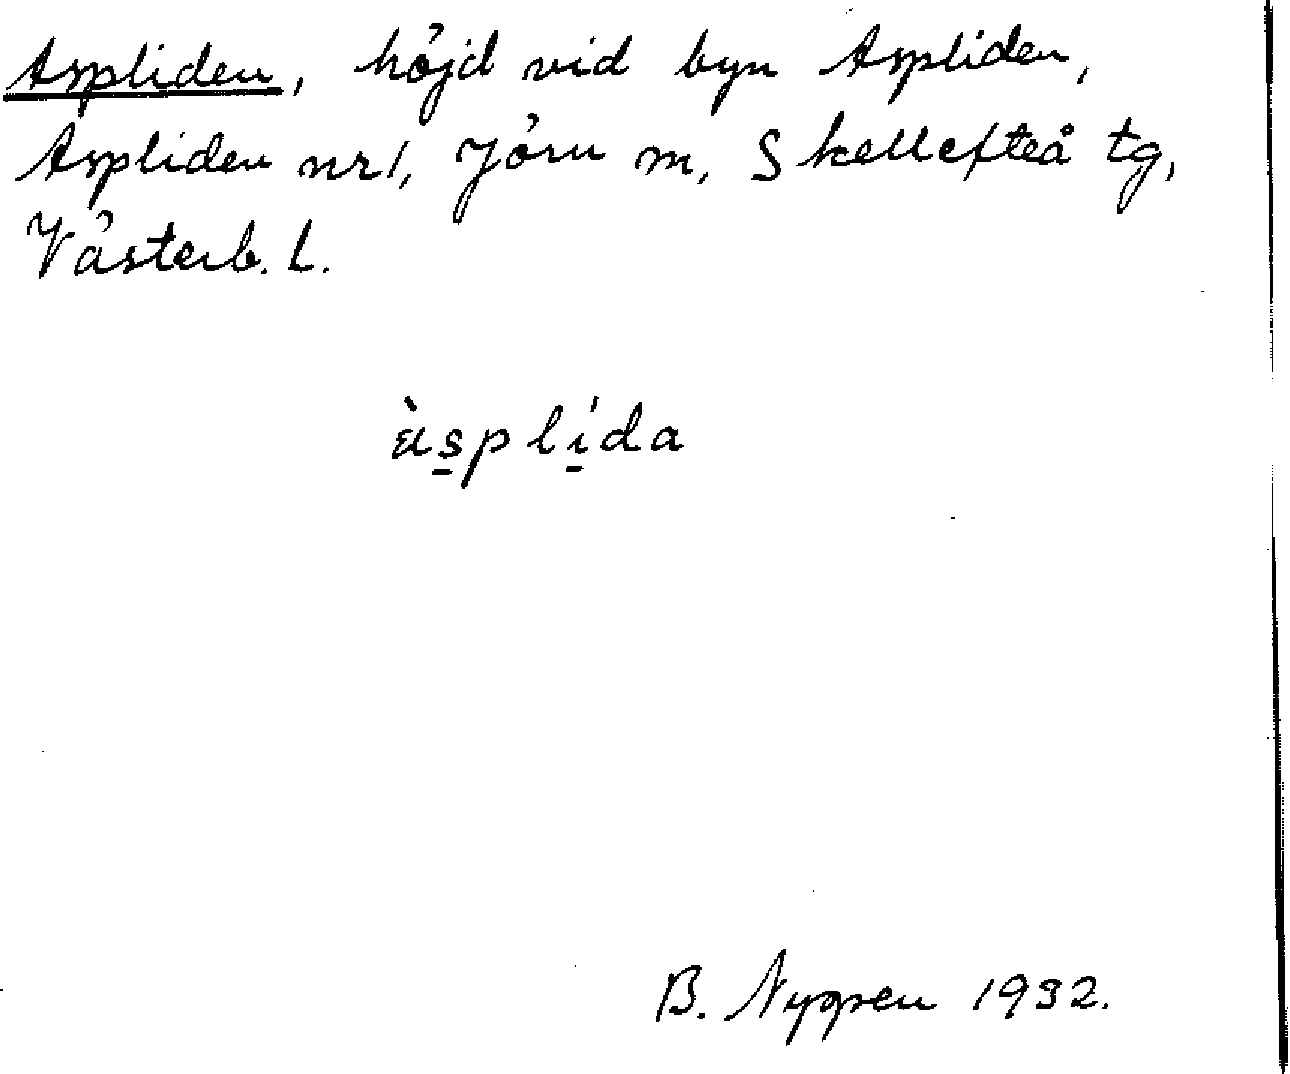 Aspliden, höjd vid byn Aspliden,
Aspliden nr 1, Jörn m, Skellefteå tg,
Västerb. L.
às̱plí̱da
B. Nygren 1932.